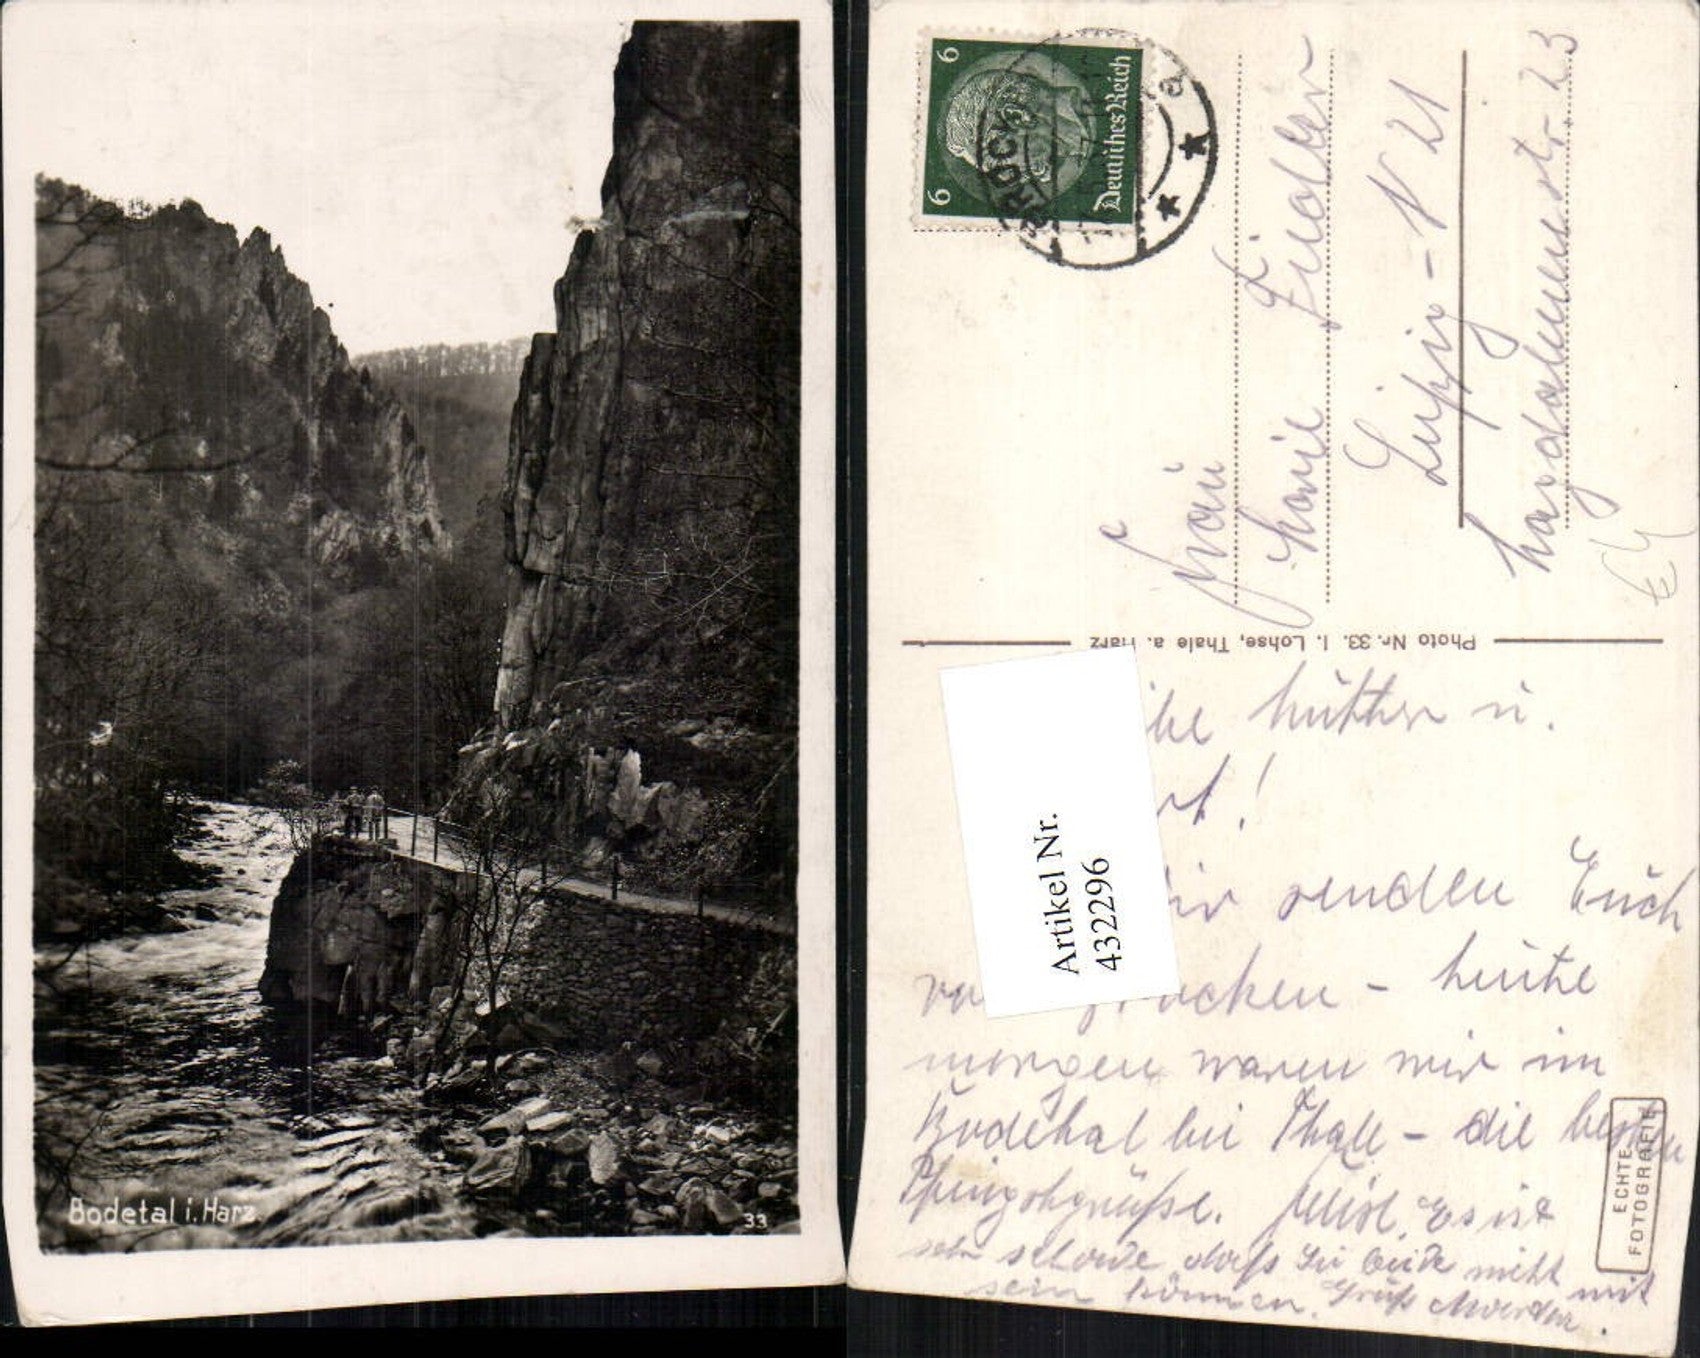 Bodetal i. Harz.
33
6
6
Deutsches Reich
BROCK
Frau
Fiedler
Leipzig - N 21
23
Photo Nr. 33. I. Lohse, Thale a. Harz
Artikel Nr.
432296
Mutter u.
senden Euch
- heute
morgen waren wir im
Bodethal bei Thale - die besten
Pfingstgrüße. Es ist
sehr schade, daß Ihr beide nicht mit
sein können. Gruß
ECHTE
FOTOGRAFIE